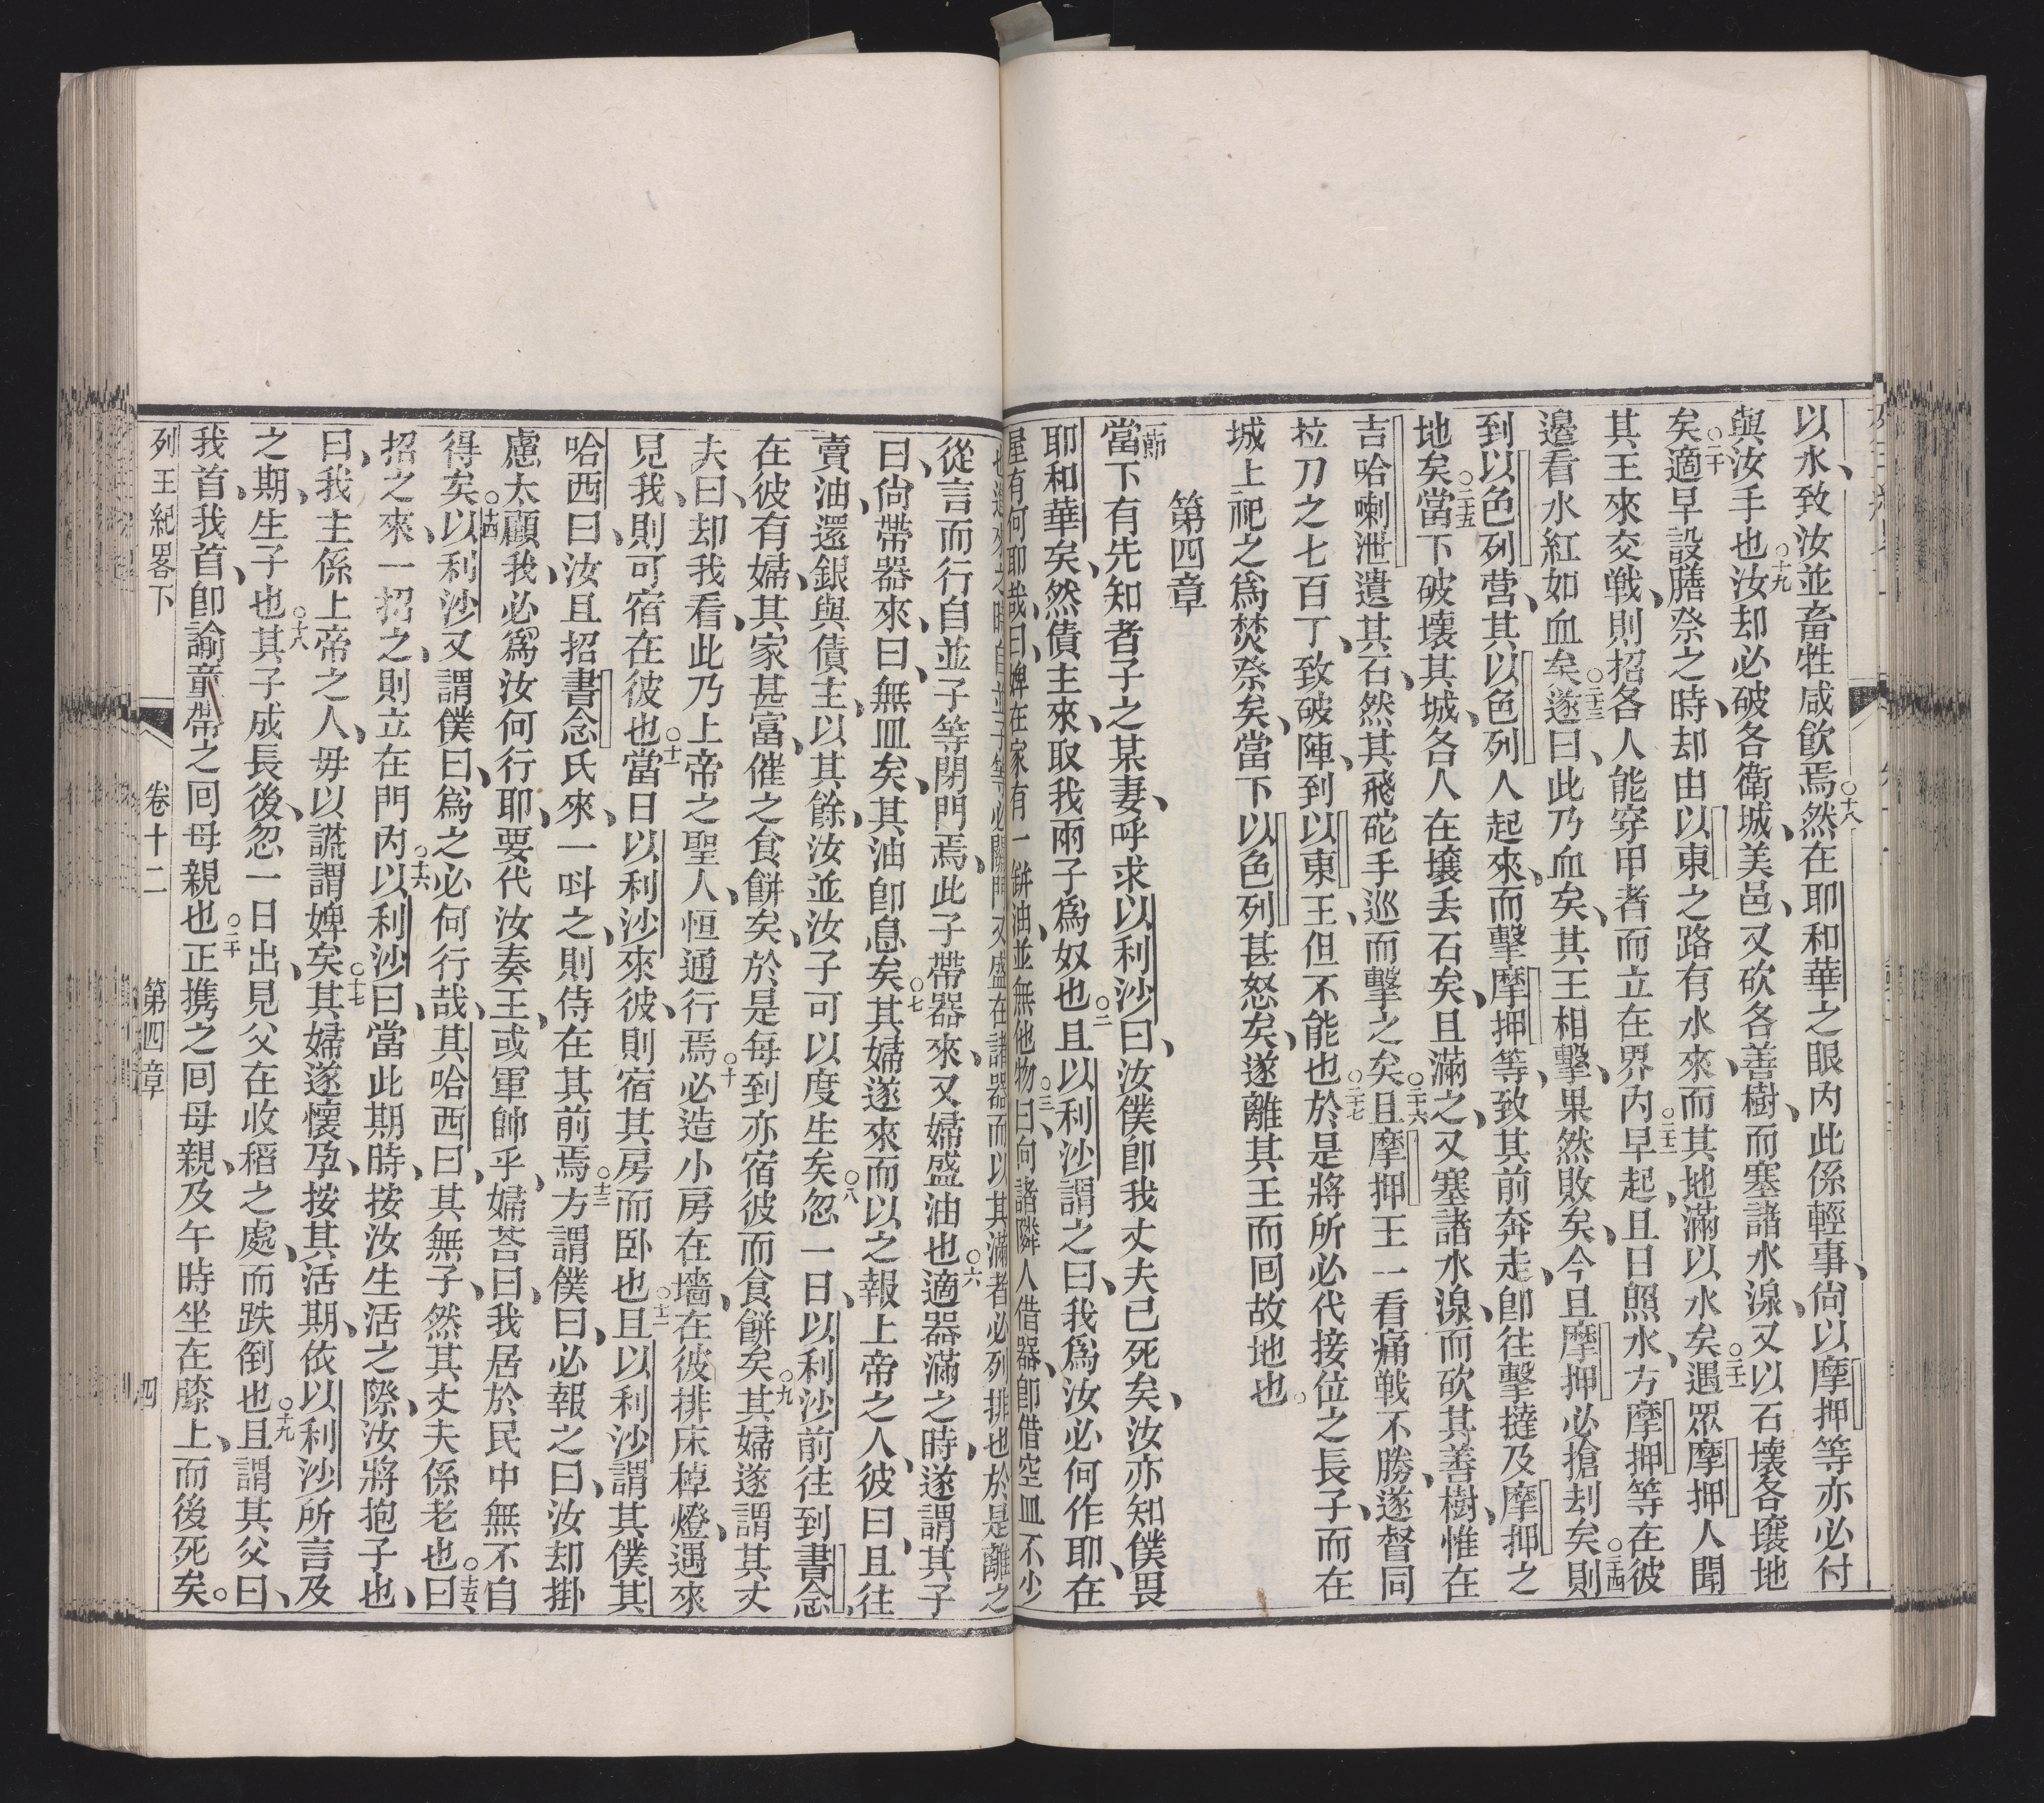 以水、致汝並畜牲咸飲焉○十八然在耶和華之眼內此係輕事、尙以摩押等亦必付
與汝手也○十九汝却必破各衛城、美邑、又砍各善樹、而塞諸水湶、又以石壞各壤地
矣○二十適早設膳祭之時、却由以東之路有水來、而其地滿以水矣○二十一遇眾摩押人聞
其王來交戦、則招各人能穿甲者而立在界內○二十二早起、且日照水、方摩押等在彼
邊看水紅如血矣○二十三遂曰、此乃血矣、其王相擊、果然敗矣、今且摩押必搶刦矣○二十四則
到以色列营、其以色列人起來、而擊摩押等、致其前奔走、卽往擊撻及摩押之
地矣○二十五當下破壞其城、各人在壤丢石矣、且滿之、又塞諸水湶、而砍其善樹、惟在
吉哈喇泄遺其石、然其飛砣手巡而擊之矣○二十六且摩押王一看痛戦不勝、遂督同
拉刀之七百丁、致破陣、到以東王、但不能也○二十七於是將所必代接位之長子、而在
城上祀之爲焚祭矣、當下以色列甚怒矣、遂離其王而囘故地也。
第四章
一節當下有先知者子之某妻、呼求以利沙曰、汝僕卽我丈夫已死矣、汝亦知僕畏
耶和華矣、然債主來、取我兩子爲奴也○二且以利沙謂之曰、我爲汝必何作耶、在
屋有何耶哉、曰、婢在家有一缾油、並無他物○三曰、向諸隣人借器、卽借空皿不少
也進來之時、自並子等必關門又盛在諸器而以其滿者必列排也於是離之
從言而行自並子等閉門焉、此子帶器來、又婦盛油也○六適器滿之時、遂謂其子
曰、尙帶器來、曰、無皿矣、其油卽息矣○七其婦遂來而以之報上帝之人、彼曰、且往
賣油、還銀與債主、以其餘、汝並汝子可以度生矣○八忽一日、以利沙前往到書念、
在彼有婦、其家甚富、催之食餅矣、於是每到亦宿彼而食餅矣○九其婦遂謂其丈
夫曰、却我看此乃上帝之聖人、恒通行焉○十必造小房在墻、在彼排床棹燈、遇來
見我、則可宿在彼也○十一當日以利沙來彼、則宿其房而卧也○十二且以利沙謂其僕其
哈西曰、汝且招書念氏來、一呌之、則侍在其前焉○十三方謂僕曰、必報之曰、汝却掛
慮太顧我、必爲汝何行耶、要代汝奏王、或軍帥乎、婦荅曰、我居於民中無不自
得矣○十四以利沙又謂僕曰、爲之必何行哉、其哈西曰、其無子、然其丈夫係老也○十五曰、
招之來、一招之、則立在門內○十六以利沙曰、當此期時、按汝生活之際、汝將抱子也、
曰、我主係上帝之人、毋以謊謂婢矣○十七其婦遂懷孕、按其活期、依以利沙所言及
之期、生子也○十八其子成長後、忽一日出、見父在收稻之處、而跌倒也○十九且謂其父曰、
我首、我首、卽諭童帶之囘母親也○二十正携之囘母親、及午時坐在膝上、而後死矣。
列王紀畧下 卷十二 第四章 四